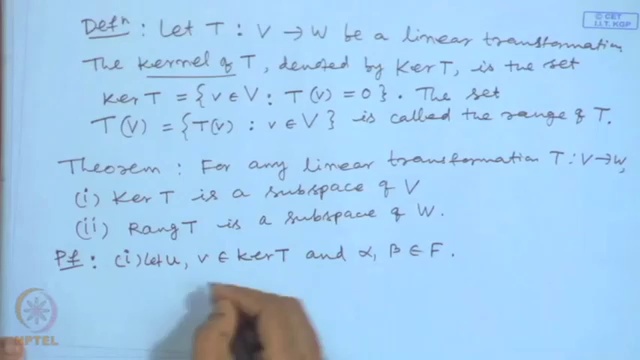 © CET
I.I.T. KGP
Defⁿ : Let T : V → W be a linear transformation
The kernel of T, denoted by Ker T, is the set
Ker T = {v ∈ V : T(v) = 0}. The set
T(V) = {T(v) : v ∈ V} is called the range of T.
Theorem : For any linear transformation T : V → W,
(i) Ker T is a subspace of V
(ii) Rang T is a subspace of W.
Pf : (i) Let u, v ∈ Ker T and α, β ∈ F.
NPTEL